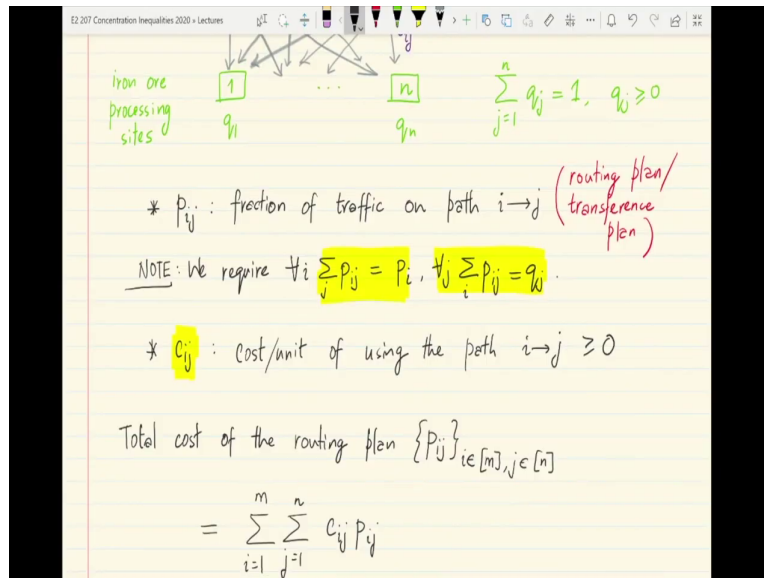 E2 207 Concentration Inequalities 2020 » Lectures
ij
iron ore
processing
sites
1 ... n
q₁ qₙ
∑_{j=1}^{n} qⱼ = 1, qⱼ ≥ 0
* pᵢⱼ : fraction of traffic on path i→j (routing plan/
transference
plan)
NOTE: We require ∀i ∑_j pᵢⱼ = pᵢ, ∀j ∑_i pᵢⱼ = qⱼ.
* cᵢⱼ : cost/unit of using the path i→j ≥ 0
Total cost of the routing plan {pᵢⱼ}_{i∈[m], j∈[n]}
= ∑_{i=1}^{m} ∑_{j=1}^{n} cᵢⱼ pᵢⱼ